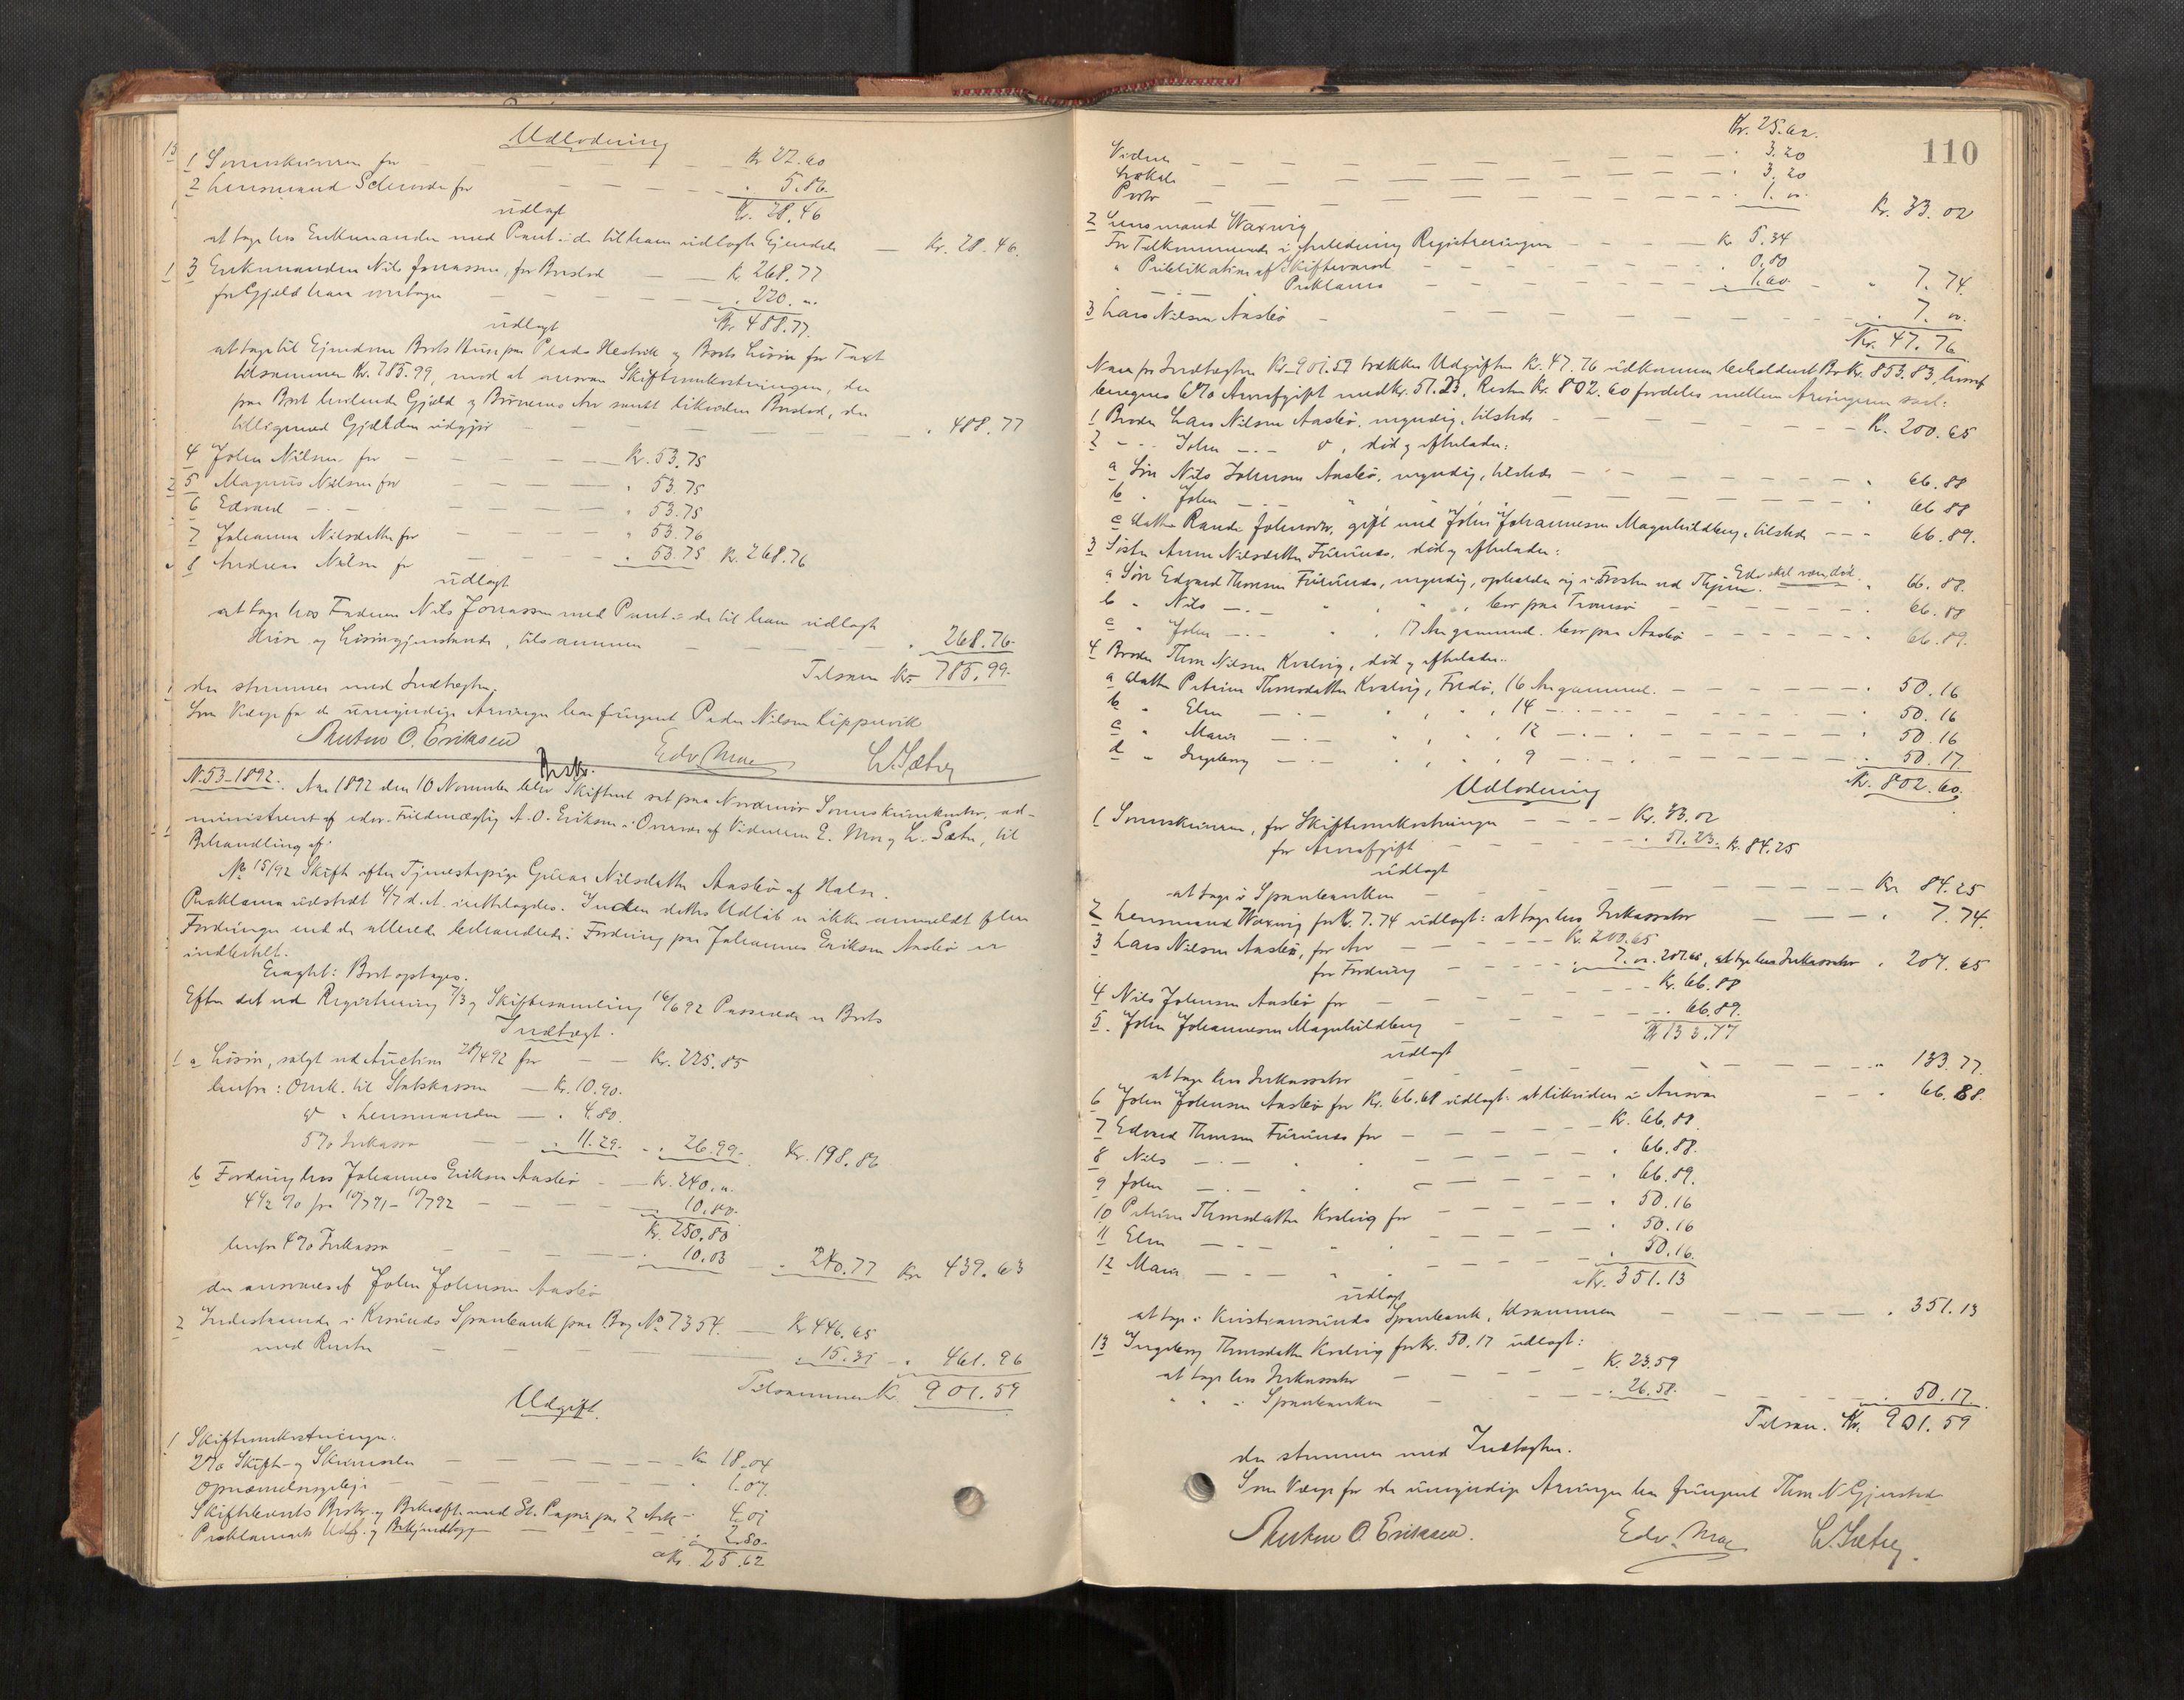 Udlodning
1 Sorenskriveren for — Kr 22.60
2 Lensmand Schevrde for — " 5.86
udlagt Kr. 28.46
at tage hos Enkemanden med Pant i de til ham udlagte Eiendele — Kr. 28.46.
3 Enkemanden Nils Jonassen, for Boslod — Kr 268.77
for Gjæld han overtager — " 220. "
udlagt Kr 488.77.
at tage til Eiendom Boets Huse paa Pladsen og Boets Løsøre for Taxt
tilsammen Kr. 785.99, mod at ansvare Skifteomkostningerne, den
paa Boet heftende Gjæld og Børnenes Arv samt likvidere Boslod, der
tilligemed Gjælden udgjør — " 488.77
4 John Nilsen for — Kr. 53.75
5 Magnus Nilsen for — " 53.75
6 Edvard — " — " 53.75
7 Johanna Nilsdatter for — " 53.76
8 Andreas Nilsen for — " 53.75 Kr. 268.76
udlagt
at tage hos Faderen Nils Jonassen med Pant i de til ham udlagte
Huse og Løsøregjenstande, tilsammen — " 268.76
Tilsamm. Kr. 785.99.
der stemmer med Indtægten.
Som Værge for de umyndige Arvinger har fungeret Peder Nilsen Lippevik
Anton O. Eriksen Edv. Moe L. Sæter
N. 53-1892. Aar 1892 den 10 November blev Skifteret sat paa Nordmør Sorenskriverkontor, ad-
ministreret af edsv. Fuldmægtig A. O. Eriksen i Overvær af Vidnerne E. Moe og L. Sæter, til
Behandling af:
No 15/92 Skifte efter Tjenestepige Guruna Nilsdatter Aasbø af Halse.
Proklama udstedt 4/7 d. A. irettelagdes. Inden dettes Udløb er ikke anmeldt flere
Fordringer end de allerede behandlede. Fordring paa Johannes Eriksen Aasbø er
indbetalt.
Eragtet: Boet optages.
Efter det ved Registrering 7/3 og Skiftesamling 16/6 92 Passerede er Boets
Indtægt.
1 a Løsøre, solgt ved Auction 28/4 92 for — Kr. 225.85
herfra: Omk. til Statskassen — Kr. 10.90.
do " Lensmanden — " 4.80.
5% Inkasso — " 11.29. — " 26.99. Kr. 198.86
b Fordring hos Johannes Eriksen Aasbø — Kr. 240. "
4½ % fra 14/7 91 - 14/7 92 — 10.80.
Kr. 250.80
herfra 4% Inkasso — " 10.03 — " 240.77 Kr 439.63
der ansvares af John Johnsen Aasbø
2 Indestaaende i Krsunds Sparebank paa Bog No 7354. — Kr 446.65
med Renter — " 15.31 — " 461.96
Tilsammen Kr. 901.59
Udgift.
1 Skifteomkostninger:
2% Skifte- og Skriversalær — Kr 18.04
Opnævnelsesgebyr — " 1.07.
Skiftebrevets Beskr. og Bekræft. med St. Papir paa 2 Ark — 4.01
Proklamaets Udf. og Bekjendtgj. — " 2.50.
Kr. 25.62
110
Kr. 25.62.
Vidner — " 3.20
Lokale — " 3.20
Porto — " 1. " Kr. 33.02
2 Lensmand Waxvig
For Tilkommende i Anledning Registreringen — Kr 5.34
" Publikation af Skiftevarsel — " 0.80
" — " — Proklama — " 1.60 — " 7.74.
3 Lars Nilsen Aasbø — " 7. "
Kr. 47.76
Naar fra Indtægten Kr. 901.59 trækkes Udgiften Kr. 47.76 udkommer beholdent Bo Kr. 853.83, hvoraf
beregnes 6% Arveafgift med Kr. 51.23. Resten Kr. 802.60 fordeles mellem Arvingerne saal:
1 Broder Lars Nilsen Aasbø, myndig, tilstede — Kr. 200.65
2 — " — John — " — do, død og efterlader:
a Søn Nils Johnsen Aasbø, myndig, tilstede — " 66.88
b " John — " — 66.88
c Datter Randi Johnsdtr, gift med John Johannesen Magnhildberg, tilstede — 66.89.
3 Søster Anne Nilsdatter Furunes, død og efterlader:
Edv. skal være død.
a Søn Edvard Thomsen Furunes, myndig, opholder sig i Frosten ved Thjem. " 66.88.
b " Nils — " — bor paa Tromsø — " 66.88
c " John — " — 17 Aar gammel. bor paa Aasbø — " 66.89.
4 Broder Thom Nilsen Kvalvig, død og efterlader:
a Datter Petrine Thomsdatter Kvalvig, Fredø, 16 Aar gammel. — " 50.16
b " Elen — " — 14 — " — 50.16
c " Maria — " — 12 — " — 50.16
d " Ingeborg — " — 9 — " — 50.17
Kr. 802.60.
Udlodning
1 Sorenskriveren, for Skifteomkostninger — Kr. 33.02
for Arveafgift — " 51.23. Kr. 84.25
udlagt
at tage i Sparebanken — Kr 84.25
2 Lensmand Waxvig for Kr. 7.74 udlagt: at tage hos Inkassator — " 7.74.
3 Lars Nilsen Aasbø, for Arv — Kr. 200.65
for Fordring — " 7. " 207.65, at tage hos Inkassator " 207.65
4 Nils Johnsen Aasbø for — Kr. 66.88
5. John Johannesen Magnhildberg — " 66.89.
Kr 133.77
udlagt
at tage hos Inkassator — " 133.77.
6 John Johnsen Aasbø for Kr. 66.68 udlagt: at likvidere i Ansvar — " 66.88.
7 Edvard Thomsen Furunes for — Kr. 66.88.
8 Nils — " — " 66.88.
9 John — " — " 66.89.
10 Petrine Thomsdatter Kvalvig for — " 50.16
11 Elen — " — " 50.16
12 Maria — " — " 50.16.
Kr. 351.13
udlagt
at tage i Kristiansunds Sparebank, tilsammen — " 351.13
13 Ingeborg Thomsdatter Kvalvig for Kr. 50.17 udlagt:
at tage hos Inkassator — Kr. 23.59
" " i Sparebanken — " 26.58. — " 50.17.
Tilsam. Kr. 901.59
der stemmer med Indtægten.
Som Værge for de umyndige Arvinger har fungeret Thom N. Gjersted
Anton O. Eriksen. Edv. Moe L. Sæter.